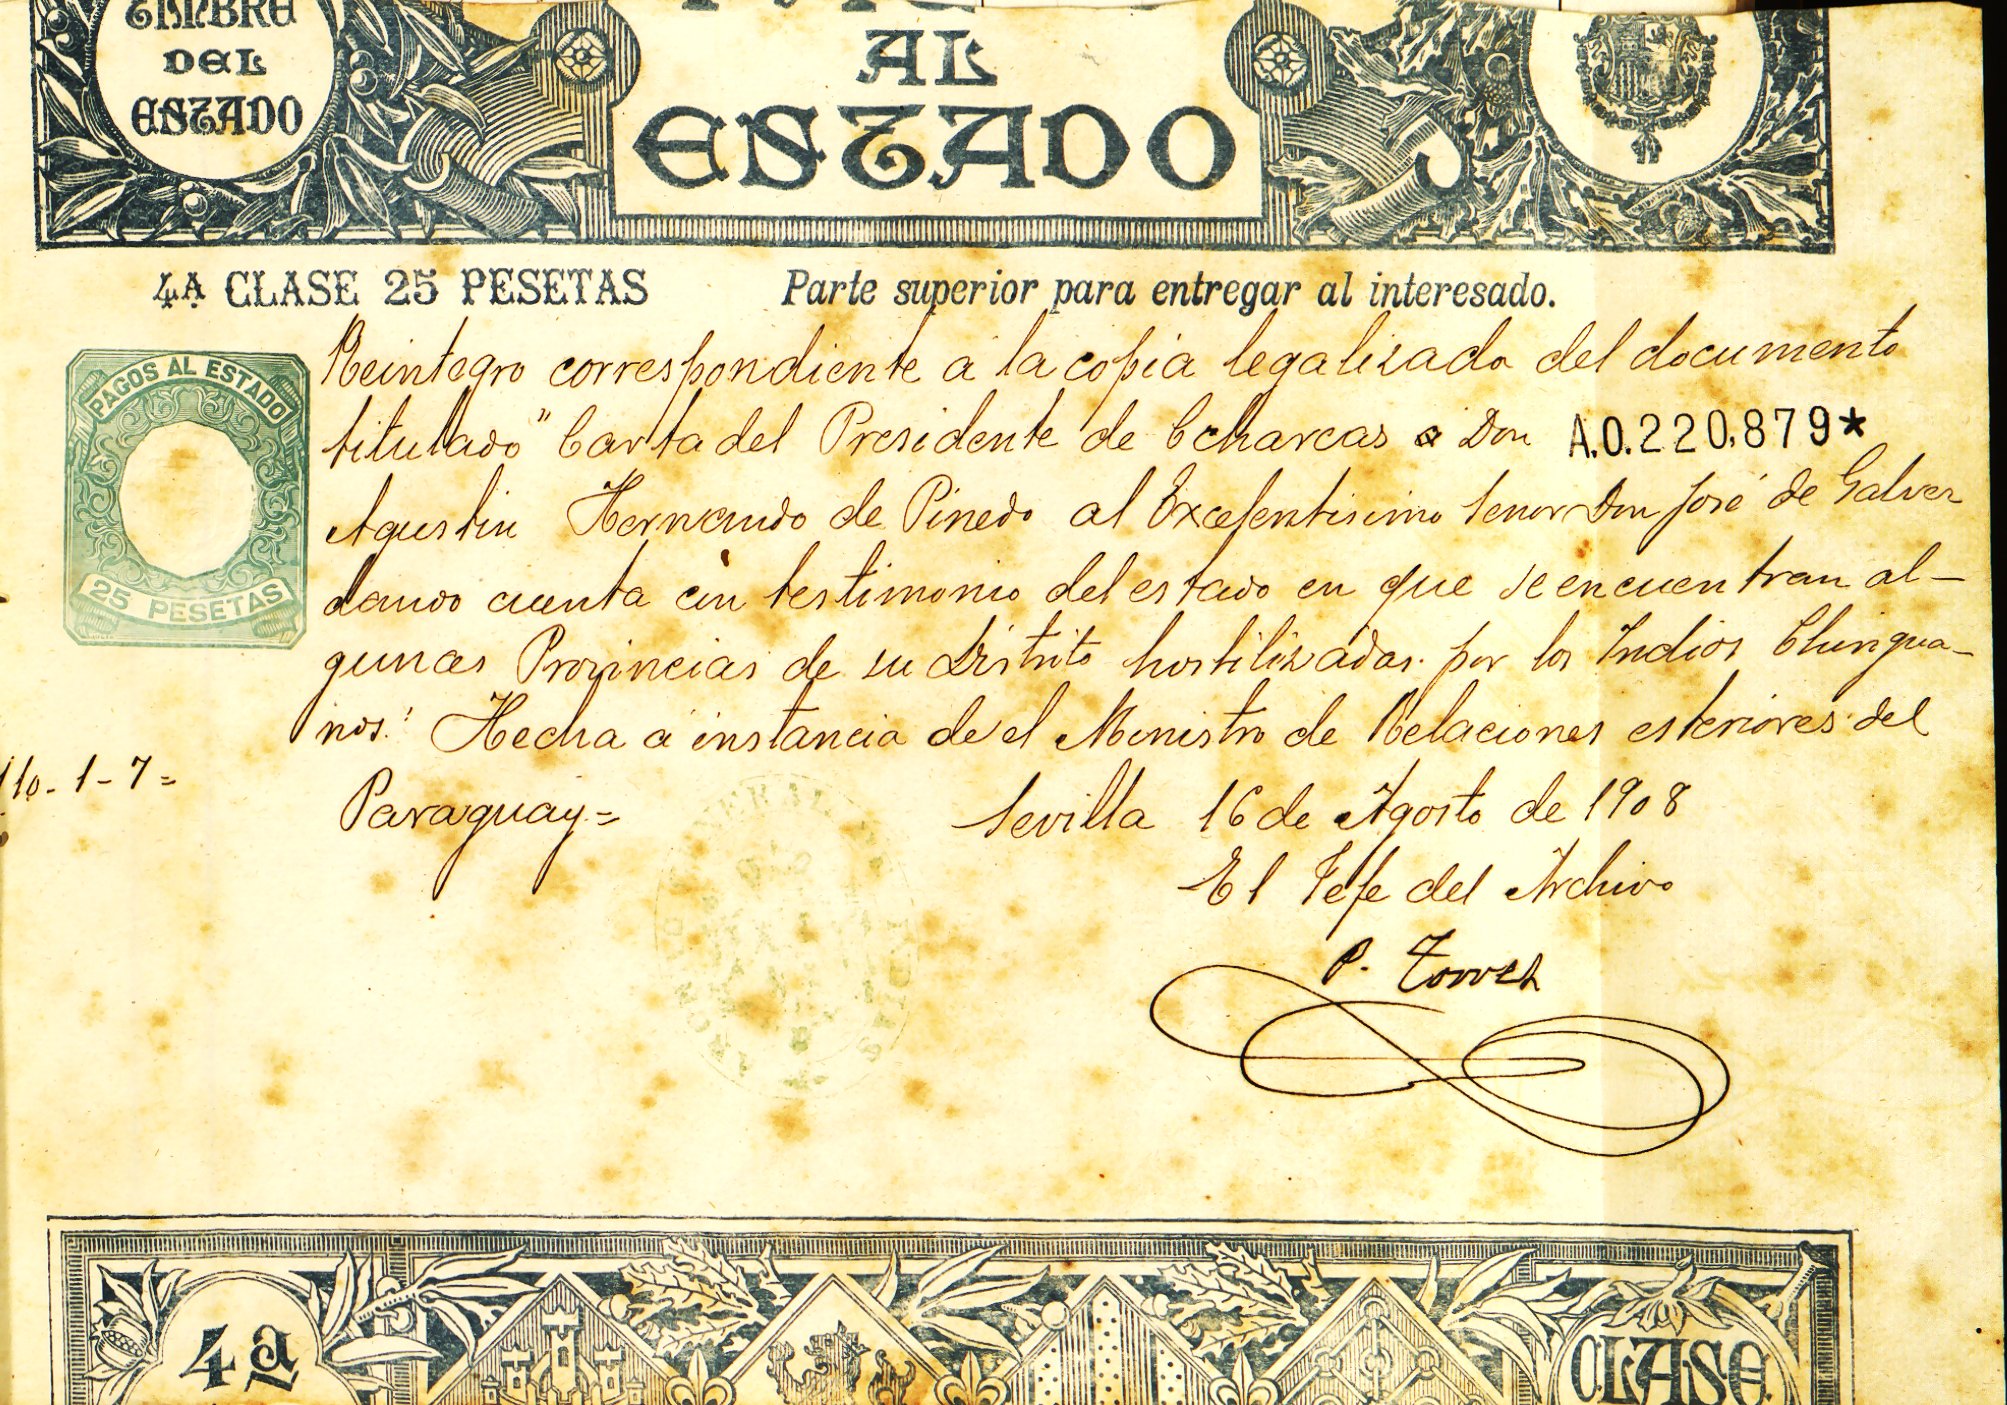 TIMBRE
DEL
ESTADO
AL
ESTADO
4A CLASE 25 PESETAS
Parte superior para entregar al interesado.
PAGOS AL ESTADO
25 PESETAS
Reintegro correspondiente a la copia legalizada del documento
titulado "Carta del Presidente de Ccharcas a Don
A.0.220,879*
Agustin Hernando de Pinedo al Excelentisimo Senor Don José de Galvez
dando cuenta con testimonio del estado en que se encuentran al-
gunas Provincias de su Distrito hostilizadas por los Indios Chirigua-
nos." Hecha a instancia de el Ministro de Relaciones esteriores del
Paraguay=
110-1-7=
Sevilla 16 de Agosto de 1908
El Jefe del Archivo
P. Torres
4a
CLASE